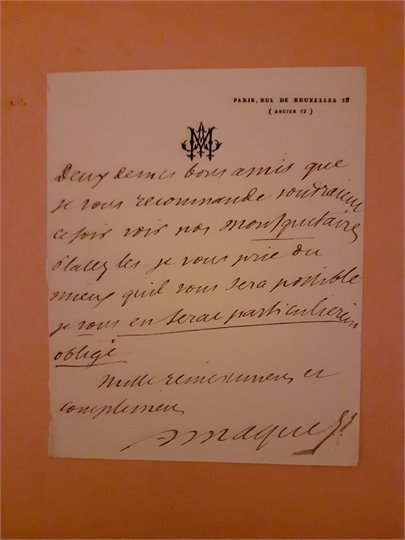 PARIS, RUE DE BRUXELLES 15
(ANCIEN 12)
AM
Deux de mes bons amis que
je vous recommande voudraient
ce soir voir nos mousquetaires
Placez les je vous prie du
mieux qu'il vous sera possible
je vous en serai particulièrement
obligé
Mille remerciemens et
complimens
A Maquet